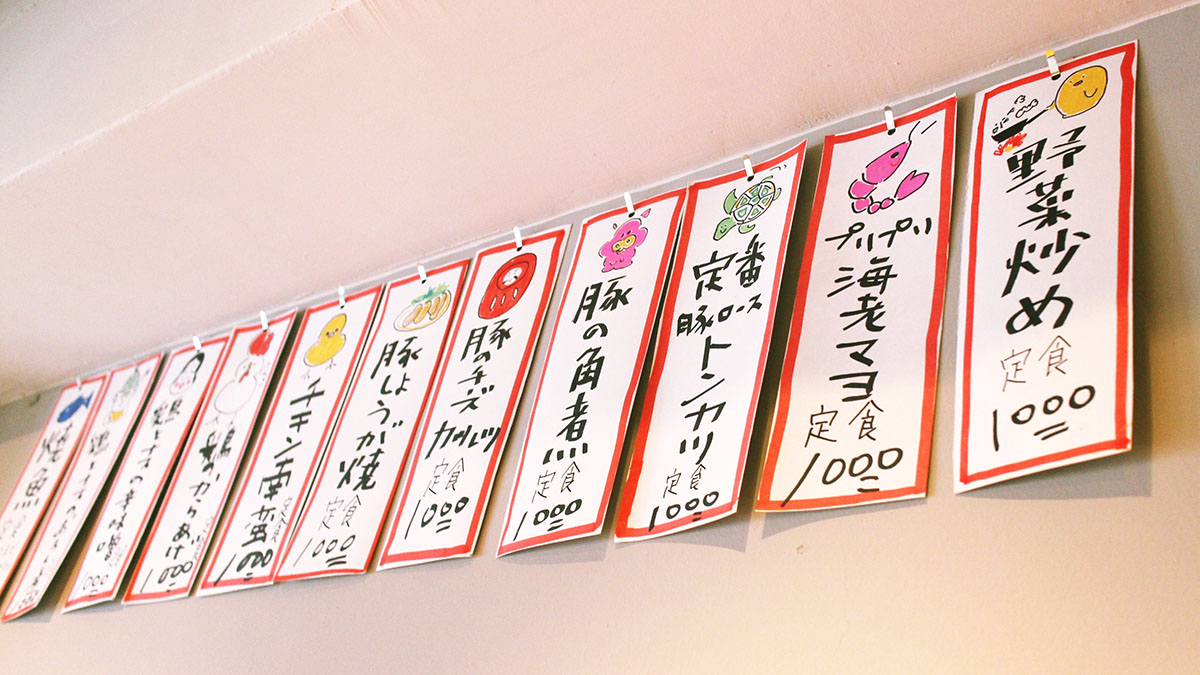 野菜炒め
定食
1000
プリプリ
海老マヨ
定食
1000
定番
豚ロース
トンカツ
定食
1000
豚の角煮
定食
1000
豚のチーズ
カツレツ
定食
1000
豚しょうが焼
定食
1000
チキン南蛮
定食
1000
鶏のからあげ
定食
1000
鶏となすの辛味噌
焼魚